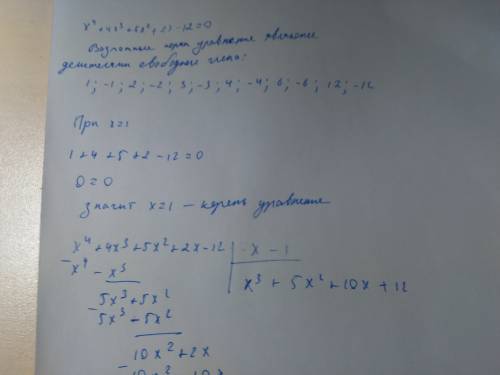 x⁴+4x³+5x²+2x-12=0
Возможные корни уравнения являются
делителями свободного члена:
1; -1; 2; -2; 3; -3; 4; -4; 6; -6; 12; -12
При x=1
1+4+5+2-12=0
0=0
значит x=1 – корень уравнения
x⁴+4x³+5x²+2x-12 | x-1
- x⁴-x³ x³+5x²+10x+12
5x³+5x²
- 5x³-5x²
10x²+2x
- 10x²-10x